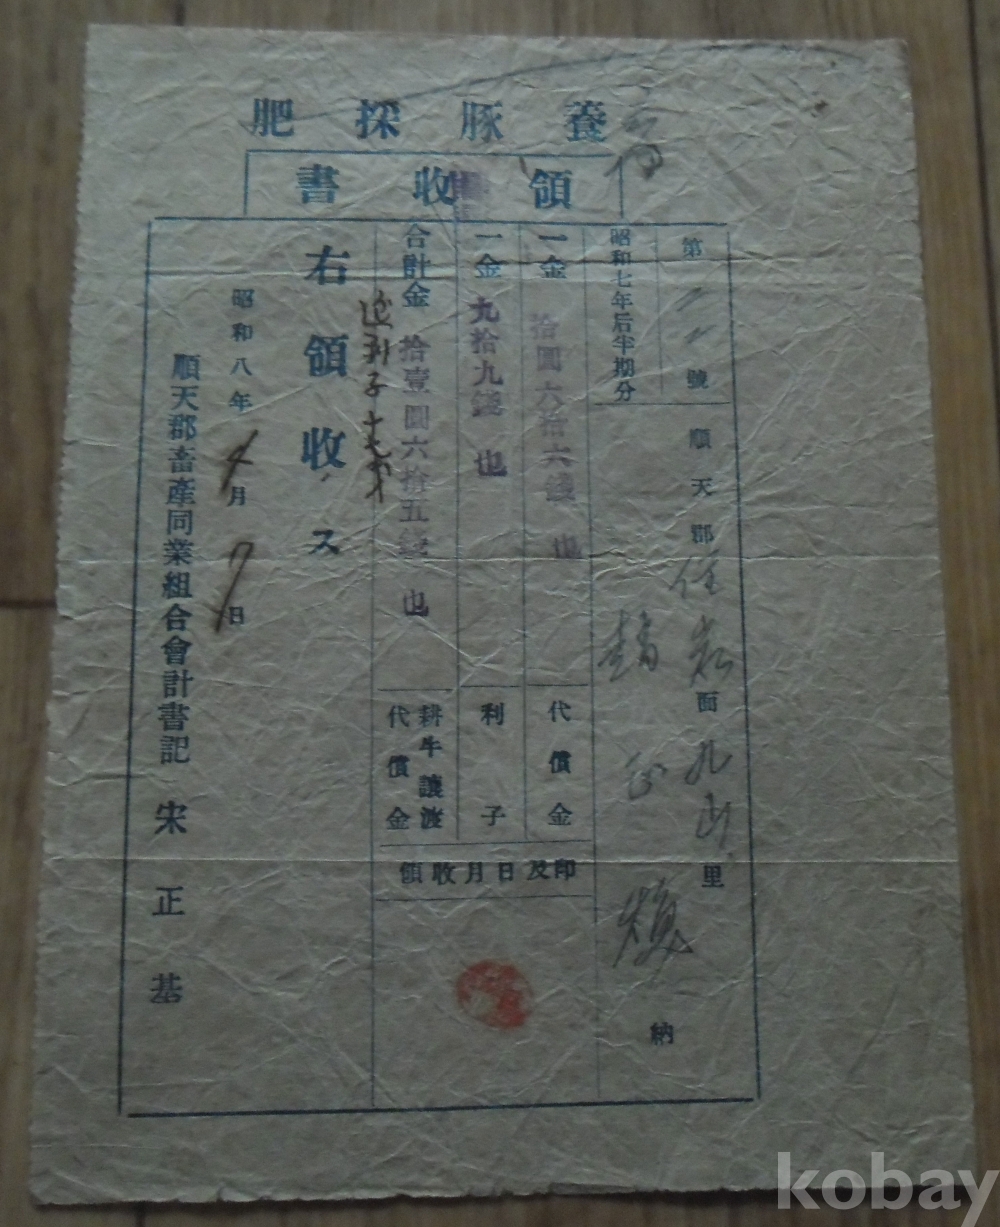 養豚採肥
領收書
第 號
順天郡 住岩 面 九山 里
趙 納
昭和七年后半期分
一金 拾圓六拾六錢也 代償金
一金 九拾九錢也 利子
合計金 拾壹圓六拾五錢也 耕牛讓渡代償金
領收月日及印
右領收ス
昭和八年 月 日
順天郡畜產同業組合會計書記 宋正基
kobay